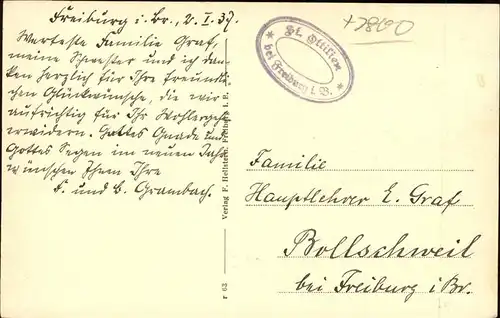 Freiburg i. Br., 2. I. 37.
Werteste Familie Graf,
meine Schwester und ich dan-
ken herzlich für Ihre freundli-
chen Glückwünsche, die wir
aufrichtig für Ihr Wohlergehen
erwidern. Gottes Gnade und
Gottes Segen im neuen Jahre
wünschen Ihnen Ihre
F. und B. Grambach.
Verlag F. Hellstern, Freiburg i. B.
r 63
* St. Ottilien *
bei Freiburg i. B.
Familie
Hauptlehrer E. Graf
Bollschweil
bei Freiburg i. Br.